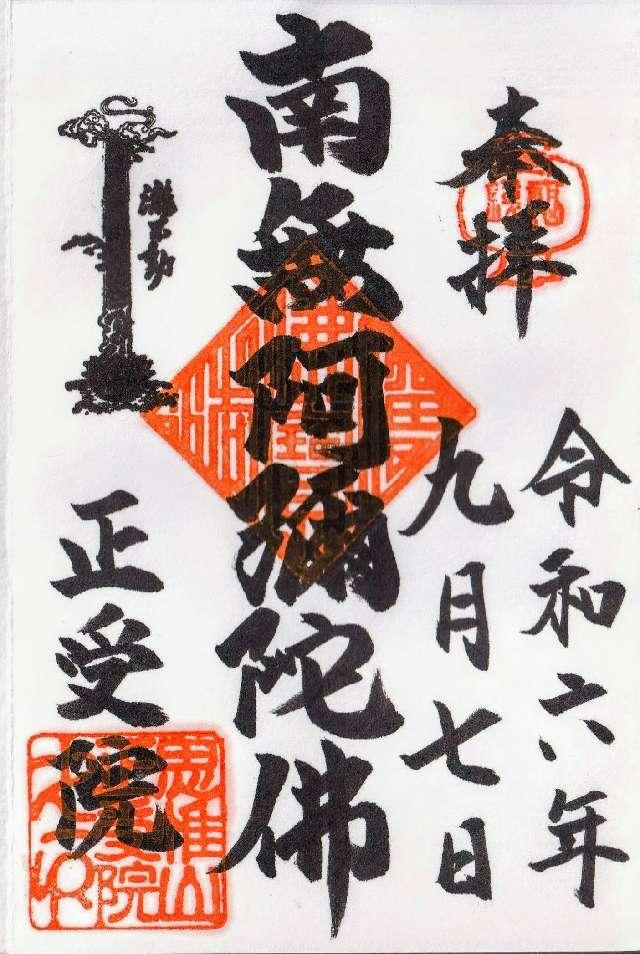 奉拝
令和六年
九月七日
南無阿彌陀佛
瀧不動
正受院